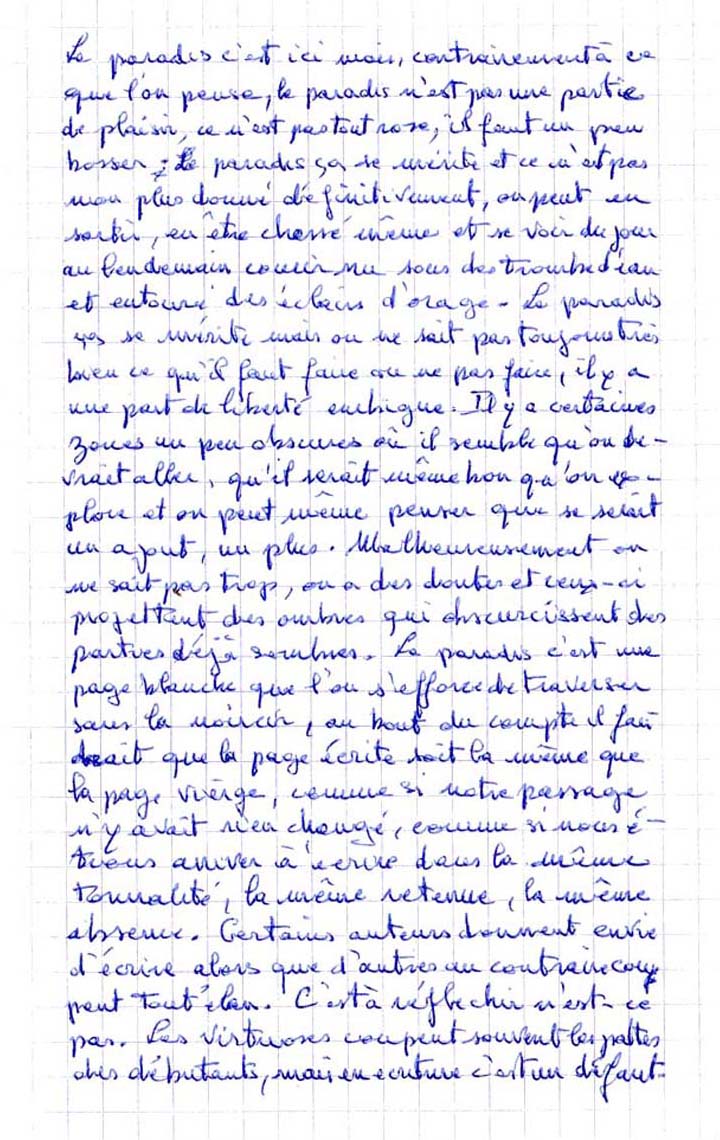 Le paradis c'est ici mais, contrairement à ce
que l'on pense, le paradis n'est pas une partie
de plaisir, ce n'est pas tout rose, il faut un peu
bosser ; le paradis ça se mérite et ce n'est pas
non plus donné définitivement, on peut en
sortir, en être chassé même et se voir du jour
au lendemain courir nu sous des trombes d'eau
et entouré des éclairs d'orage - Le paradis
ça se mérite mais on ne sait pas toujours très
bien ce qu'il faut faire ou ne pas faire, il y a
une part de liberté ambigue. Il y a certaines
zones un peu obscures où il semble qu'on de-
vrait aller, qu'il serait même bon qu'on ex-
plore et on peut même penser que se serait
un ajout, un plus. Malheureusement on
ne sait pas trop, on a des doutes et ceux-ci
projettent des ombres qui obscurcissent des
parties déjà sombres. Le paradis c'est une
page blanche que l'on s'efforce de traverser
sans la noircir, au bout du compte il fau
drait que la page écrite soit la même que
la page vierge, comme si notre passage
n'y avait rien changé, comme si nous é-
tions arriver à écrire dans la même
tonnalité, la même retenue, la même
absence. Certains auteurs donnent envie
d'écrire alors que d'autres au contraire coup
pent tout élan. C'est à réfléchir n'est-ce
pas. Les virtuoses coupent souvent les pattes
des débutants, mais en écriture c'est un défaut.